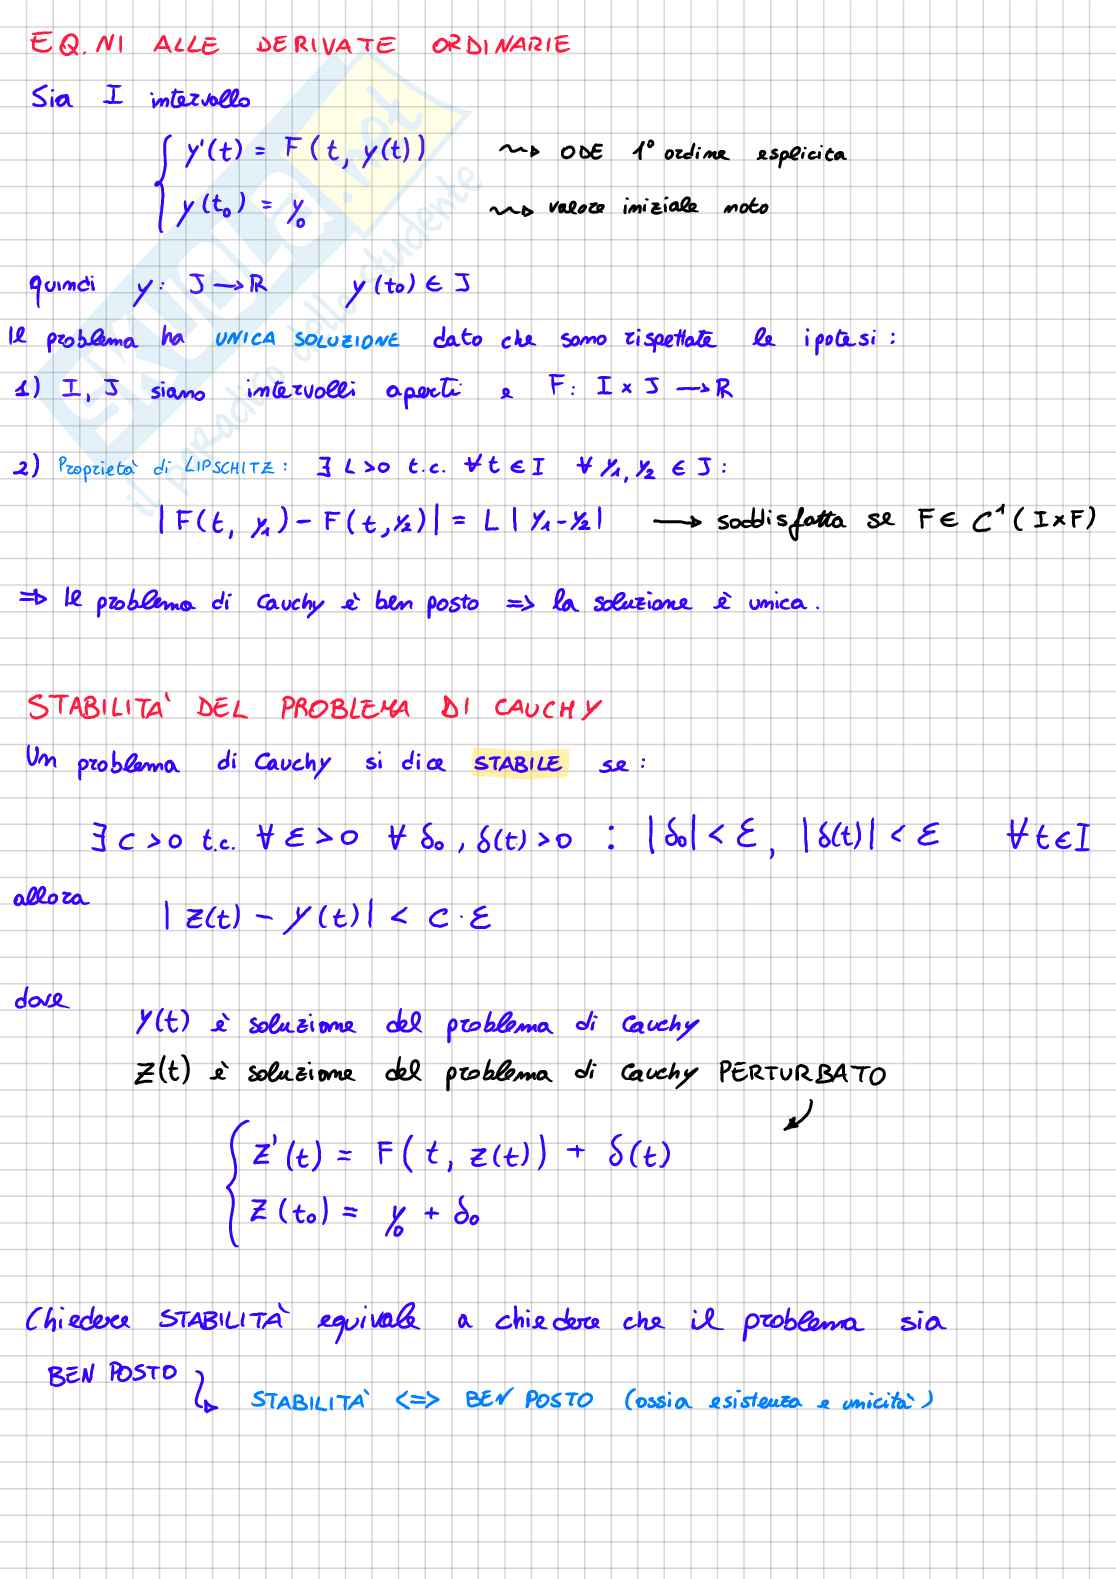 EQ.NI ALLE DERIVATE ORDINARIE
Sia I intervallo
{ y'(t) = F(t, y(t)) ⇝ ODE 1° ordine esplicita
y(t₀) = y₀ ⇝ valore iniziale noto
quindi y: J → ℝ y(t₀) ∈ J
Il problema ha UNICA SOLUZIONE dato che sono rispettate le ipotesi:
1) I, J siano intervalli aperti e F: I × J → ℝ
2) Proprietà di LIPSCHITZ: ∃ L>0 t.c. ∀ t ∈ I ∀ y₁, y₂ ∈ J:
|F(t, y₁) - F(t, y₂)| = L |y₁ - y₂| → soddisfatta se F ∈ C¹(I×F)
⇒ Il problema di Cauchy è ben posto ⇒ la soluzione è unica.
STABILITA' DEL PROBLEMA DI CAUCHY
Un problema di Cauchy si dice STABILE se:
∃ C > 0 t.c. ∀ ε > 0 ∀ δ₀, δ(t) > 0 : |δ₀| < ε, |δ(t)| < ε ∀ t ∈ I
allora
|z(t) - y(t)| < C · ε
dove
y(t) è soluzione del problema di Cauchy
z(t) è soluzione del problema di Cauchy PERTURBATO
{ z'(t) = F(t, z(t)) + δ(t)
z(t₀) = y₀ + δ₀
Chiedere STABILITÀ equivale a chiedere che il problema sia
BEN POSTO
STABILITÀ <=> BEN POSTO (ossia esistenza e unicità)
SKUOLA.net
il paradiso dello studente